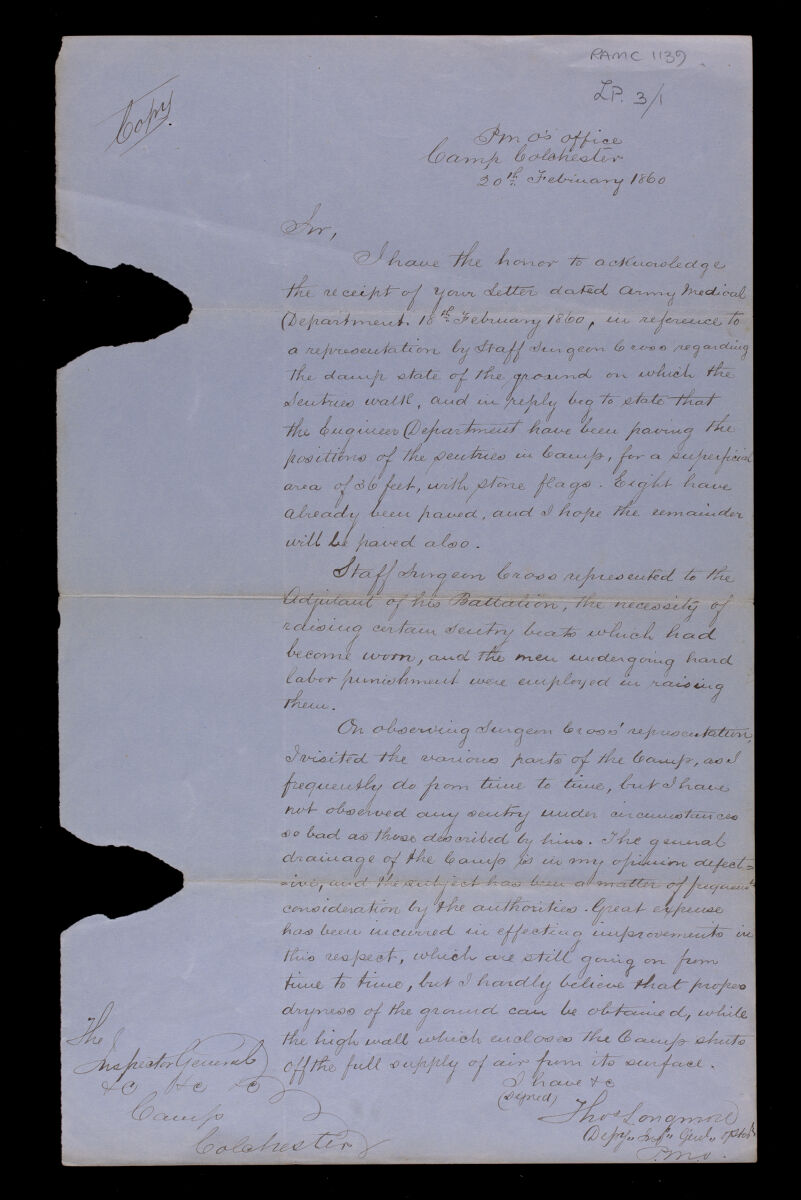 RAMC 1139.
LP. 3/1
Copy.
P.M.O's office
Camp Colchester
20th February 1860
Sir,
I have the honor to acknowledge
the receipt of your Letter dated Army Medical
Department. 18th February 1860, in reference to
a representation by Staff Surgeon Cross regarding
the damp state of the ground on which the
Sentries walk, and in reply beg to state that
the Engineer Department have been paving the
positions of the sentries in Camp, for a superficial
area of 36 feet, with stone flags. Eight have
already been paved, and I hope the remainder
will be paved also.
Staff Surgeon Cross represented to the
Adjutant of his Battalion, the necessity of
raising certain sentry beats which had
become worn, and the men undergoing hard
labor punishment were employed in raising
them.
On observing Surgeon Cross' representation,
I visited the various parts of the Camp, as I
frequently do from time to time, but I have
not observed any sentry under circumstances
so bad as those described by him. The general
drainage of the Camp is in my opinion defect=
=ive, and the subject has been a matter of frequent
consideration by the authorities. Great expense
has been incurred in effecting improvements in
this respect, which are still going on from
time to time, but I hardly believe that proper
dryness of the ground can be obtained, while
the high wall which encloses the Camp shuts
off the full supply of air from its surface.
I have &c
(signed)
Thos Longmore
Depy Insp Genl
P.M.O.
The
Inspector General
&c &c &c
Camp
Colchester